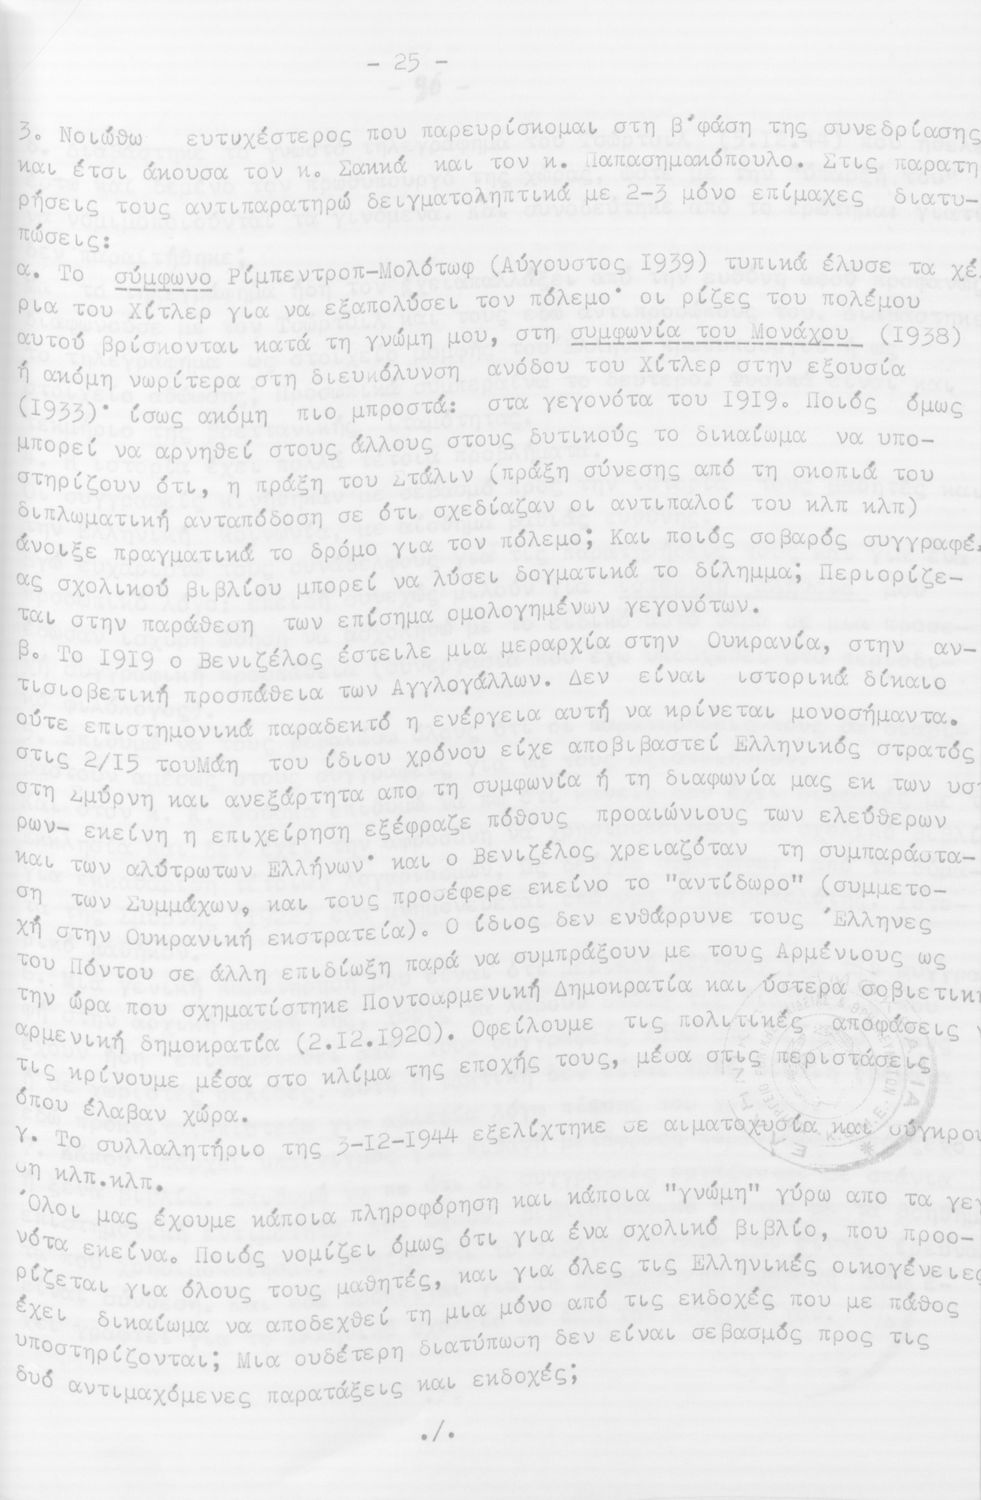 - 25 -
3. Νοιώθω ευτυχέστερος που παρευρίσκομαι στη β΄φάση της συνεδρίασης
και έτσι άκουσα τον κ. Σακκά και τον κ. Παπασημακόπουλο. Στις παρατη
ρήσεις τους αντιπαρατηρώ δειγματοληπτικά με 2-3 μόνο επίμαχες διατυ-
πώσεις:
α. Το σύμφωνο Ρίμπεντροπ-Μολότωφ (Αύγουστος 1939) τυπικά έλυσε τα χέ-
ρια του Χίτλερ για να εξαπολύσει τον πόλεμο· οι ρίζες του πολέμου
αυτού βρίσκονται κατά τη γνώμη μου, στη συμφωνία του Μονάχου (1938)
ή ακόμη νωρίτερα στη διευκόλυνση ανόδου του Χίτλερ στην εξουσία
(1933)· ίσως ακόμη πιο μπροστά: στα γεγονότα του 1919. Ποιός όμως
μπορεί να αρνηθεί στους άλλους στους δυτικούς το δικαίωμα να υπο-
στηρίζουν ότι, η πράξη του Στάλιν (πράξη σύνεσης από τη σκοπιά του
διπλωματική ανταπόδοση σε ότι σχεδίαζαν οι αντιπαλοί του κλπ κλπ)
άνοιξε πραγματικά το δρόμο για τον πόλεμο; Και ποιός σοβαρός συγγραφέ-
ας σχολικού βιβλίου μπορεί να λύσει δογματικά το δίλημμα; Περιορίζε-
ται στην παράθεση των επίσημα ομολογημένων γεγονότων.
β. Το 1919 ο Βενιζέλος έστειλε μια μεραρχία στην Ουκρανία, στην αν-
τισιοβετική προσπάθεια των Αγγλογάλλων. Δεν είναι ιστορικά δίκαιο
ούτε επιστημονικά παραδεκτό η ενέργεια αυτή να κρίνεται μονοσήμαντα.
στις 2/15 τουΜάη του ίδιου χρόνου είχε αποβιβαστεί Ελληνικός στρατός
στη Σμύρνη και ανεξάρτητα απο τη συμφωνία ή τη διαφωνία μας εκ των υστ
ρων- εκείνη η επιχείρηση εξέφραζε πόθους προαιώνιους των ελεύθερων
και των αλύτρωτων Ελλήνων· και ο Βενιζέλος χρειαζόταν τη συμπαράστα-
ση των Συμμάχων, και τους προσέφερε εκείνο το "αντίδωρο" (συμμετο-
χή στην Ουκρανική εκστρατεία). Ο ίδιος δεν ενθάρρυνε τους Έλληνες
του Πόντου σε άλλη επιδίωξη παρά να συμπράξουν με τους Αρμένιους ως
την ώρα που σχηματίστηκε Ποντοαρμενική Δημοκρατία και ύστερα σοβιετική
αρμενική δημοκρατία (2.12.1920). Οφείλουμε τις πολιτικές αποφάσεις ν
τις κρίνουμε μέσα στο κλίμα της εποχής τους, μέσα στις περιστάσεις
όπου έλαβαν χώρα.
γ. Το συλλαλητήριο της 3-12-1944 εξελίχτηκε σε αιματοχυσία και σύγκρου
ση κλπ.κλπ.
Όλοι μας έχουμε κάποια πληροφόρηση και κάποια "γνώμη" γύρω απο τα γεγ
νότα εκείνα. Ποιός νομίζει όμως ότι για ένα σχολικό βιβλίο, που προο-
ρίζεται για όλους τους μαθητές, και για όλες τις Ελληνικές οικογένειες
έχει δικαίωμα να αποδεχθεί τη μια μόνο από τις εκδοχές που με πάθος
υποστηρίζονται; Μια ουδέτερη διατύπωση δεν είναι σεβασμός προς τις
δυό αντιμαχόμενες παρατάξεις και εκδοχές;
./.